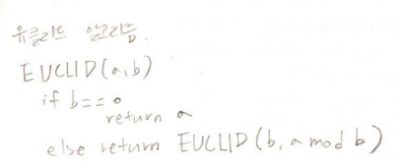 유클리드 알고리즘.
EUCLID(a,b)
if b==0
return a
else return EUCLID(b, a mod b)